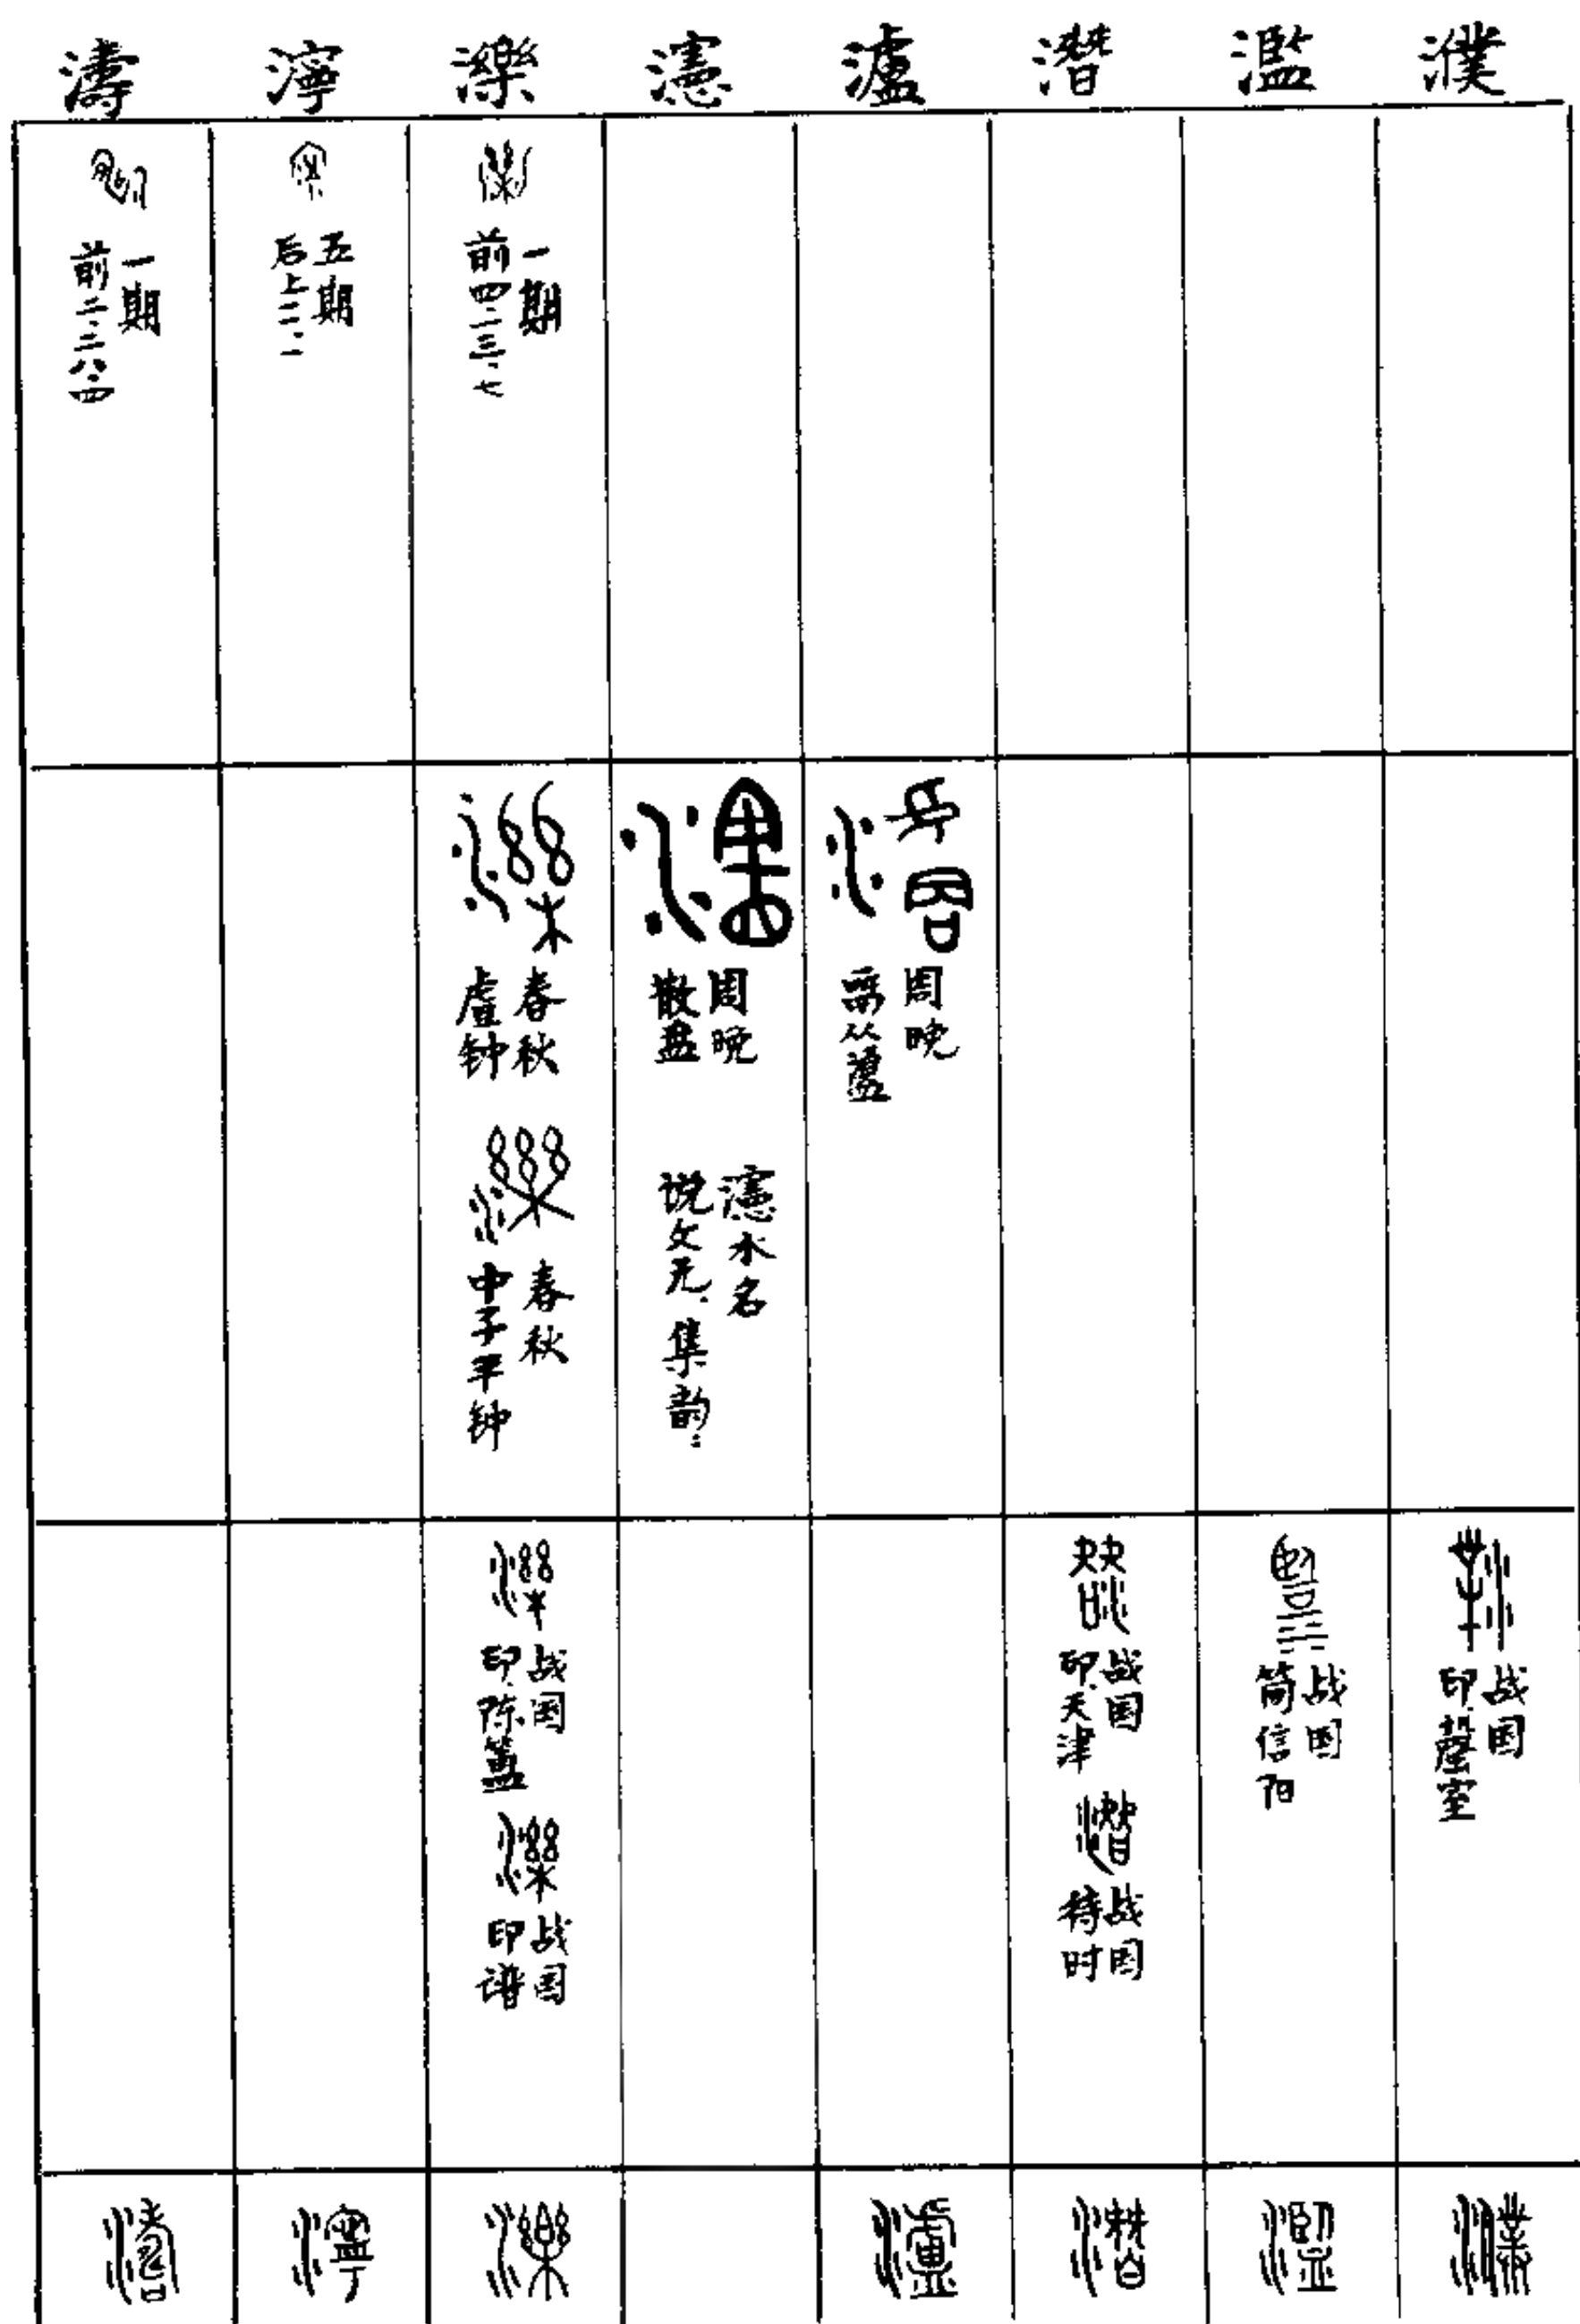 濤 濘 濼 瀗 瀘 潛 濫 濮
一期
前二.二八.四
五期
后上二.二
一期
前四.一三.七
春秋
虘钟
春秋
中子平钟
周晚
散盘
瀗水名
说文无.集韵.
周晚
战国
印.陈簠
战国
印谱
战国
印.天津
战国
待时
战国
简信阳
战国
印.